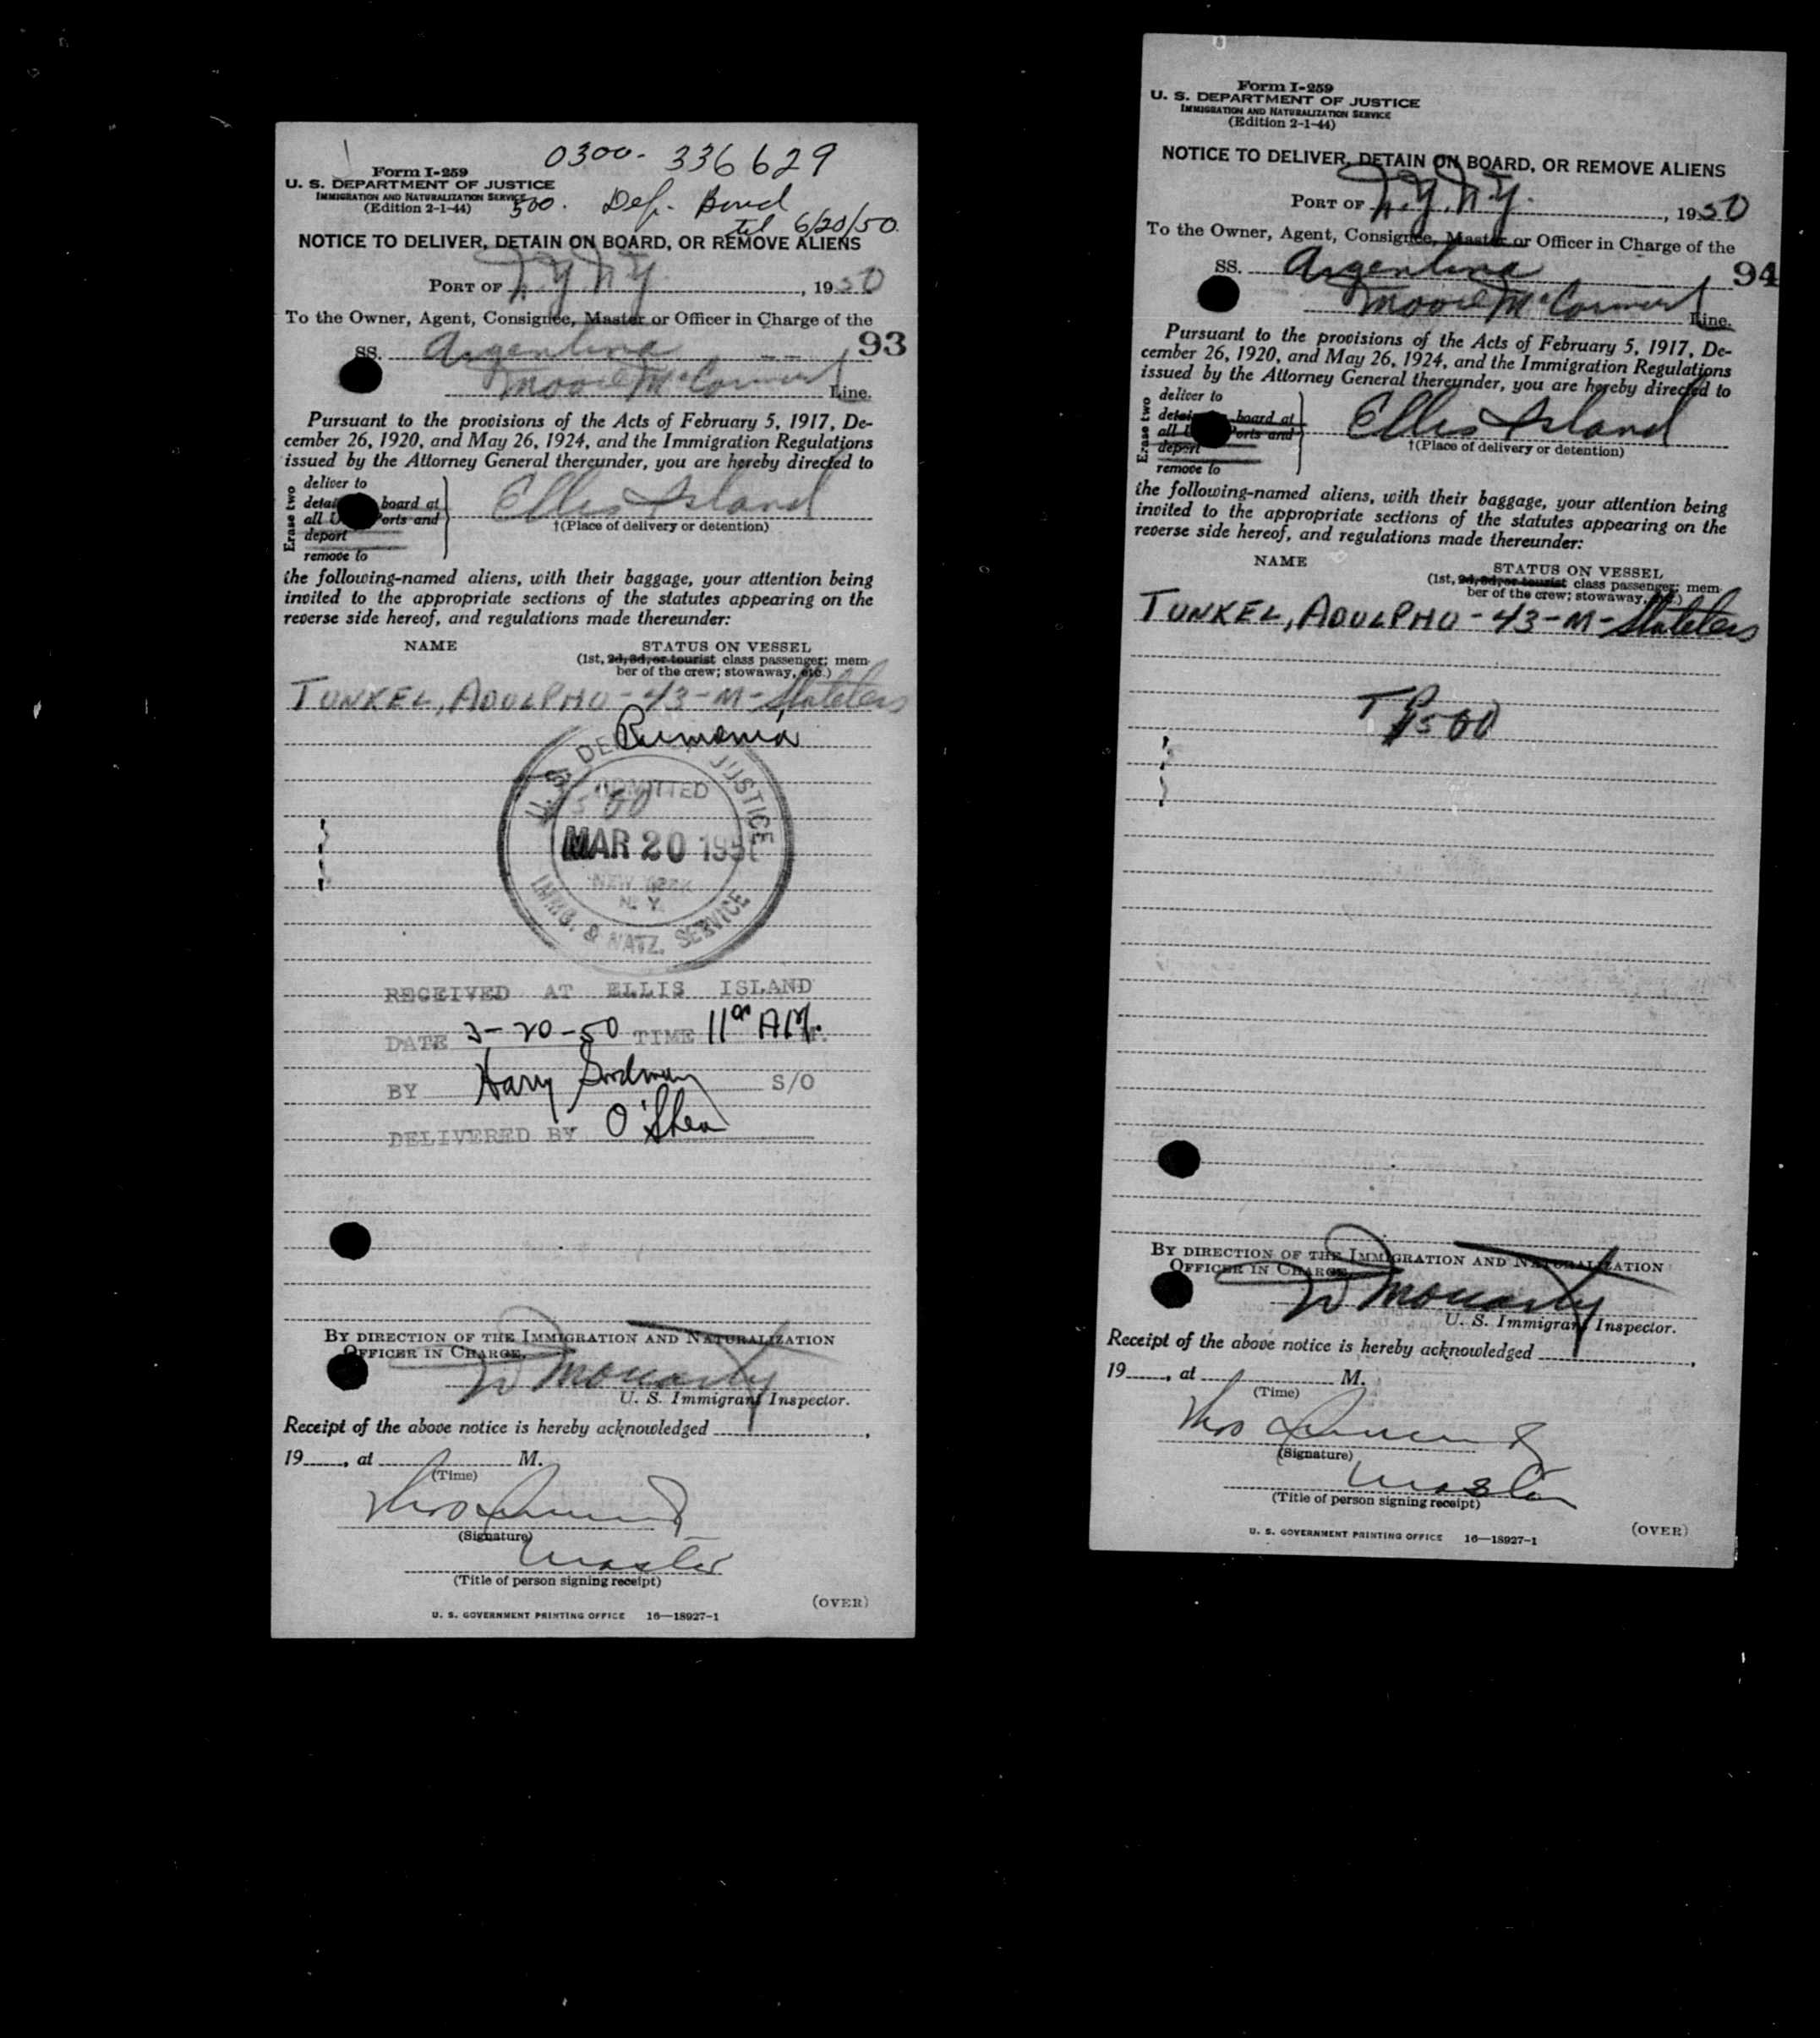 0300- 336629
Form I-259
U. S. DEPARTMENT OF JUSTICE
IMMIGRATION AND NATURALIZATION SERVICE
(Edition 2-1-44)
500. Dep. Bond
til 6/20/50.
NOTICE TO DELIVER, DETAIN ON BOARD, OR REMOVE ALIENS
PORT OF N.Y.N.Y. , 1950
To the Owner, Agent, Consignee, Master or Officer in Charge of the
SS. Argentina 93
Moore McCormack Line.
Pursuant to the provisions of the Acts of February 5, 1917, De-
cember 26, 1920, and May 26, 1924, and the Immigration Regulations
issued by the Attorney General thereunder, you are hereby directed to
Erase two
deliver to
detain board at
all U Ports and
deport
remove to
Ellis Island
†(Place of delivery or detention)
the following-named aliens, with their baggage, your attention being
invited to the appropriate sections of the statutes appearing on the
reverse side hereof, and regulations made thereunder:
NAME STATUS ON VESSEL
(1st, 2d, 3d, or tourist class passenger; mem-
ber of the crew; stowaway, etc.)
TUNKEL, ADOLPHO - 43 - M - Stateless
Rumania
U.S. DEPT JUSTICE
ADMITTED
500
MAR 20 1950
NEW YORK
N. Y.
IMMG. & NATZ. SERVICE
RECEIVED AT ELLIS ISLAND
DATE 3-20-50 TIME 11 00 AM.
BY Harry Goodman S/O
DELIVERED BY O'Shea
BY DIRECTION OF THE IMMIGRATION AND NATURALIZATION
OFFICER IN CHARGE.
Moriarty
U. S. Immigrant Inspector.
Receipt of the above notice is hereby acknowledged ,
19 , at M.
(Time)
(Signature)
Master
(Title of person signing receipt)
(OVER)
U. S. GOVERNMENT PRINTING OFFICE 16—18927-1
Form I-259
U. S. DEPARTMENT OF JUSTICE
IMMIGRATION AND NATURALIZATION SERVICE
(Edition 2-1-44)
NOTICE TO DELIVER, DETAIN ON BOARD, OR REMOVE ALIENS
PORT OF N.Y.N.Y. , 1950
To the Owner, Agent, Consignee, Master or Officer in Charge of the
SS. Argentina 94
Moore McCormack Line.
Pursuant to the provisions of the Acts of February 5, 1917, De-
cember 26, 1920, and May 26, 1924, and the Immigration Regulations
issued by the Attorney General thereunder, you are hereby directed to
Erase two
deliver to
detain board at
all U Ports and
deport
remove to
Ellis Island
†(Place of delivery or detention)
the following-named aliens, with their baggage, your attention being
invited to the appropriate sections of the statutes appearing on the
reverse side hereof, and regulations made thereunder:
NAME STATUS ON VESSEL
(1st, 2d, 3d, or tourist class passenger; mem-
ber of the crew; stowaway, etc.)
TUNKEL, ADOLPHO - 43 - M - Stateless
TP
$500
BY DIRECTION OF THE IMMIGRATION AND NATURALIZATION
OFFICER IN CHARGE.
Moriarty
U. S. Immigrant Inspector.
Receipt of the above notice is hereby acknowledged ,
19 , at M.
(Time)
(Signature)
Master
(Title of person signing receipt)
U. S. GOVERNMENT PRINTING OFFICE 16—18927-1 (OVER)